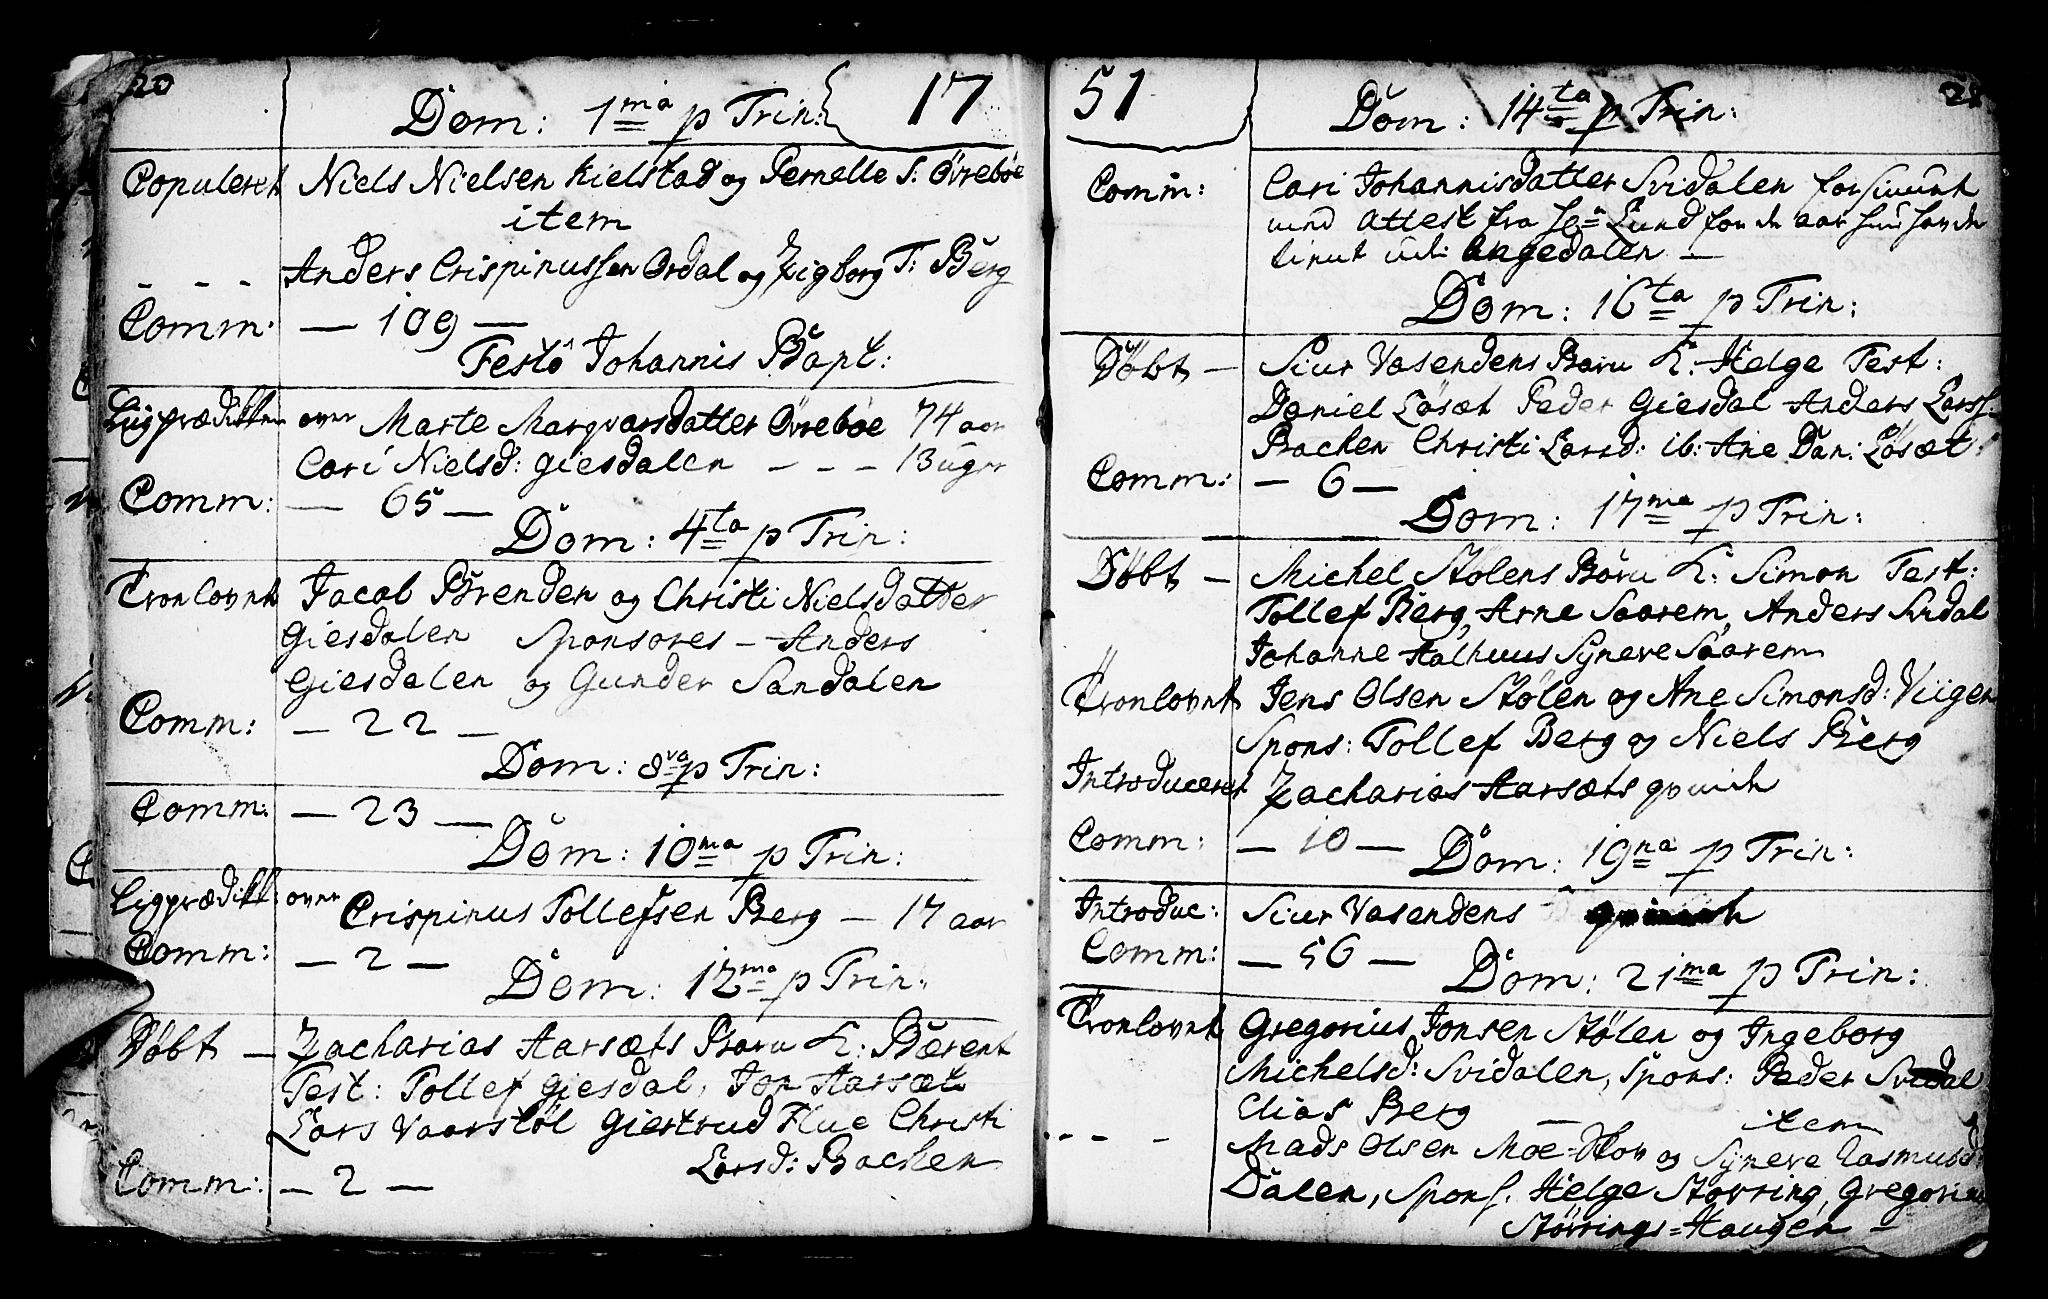 20
17
Dom: 1ma p Trin:
Copuleret Niels Nielsen Kielstad og Pernelle S: Övreböe
item
- - - Anders Crispinussen Ordal og Zigborg T: Berg
Comm: — 109 —
Festo Johannis Bapt:
Liigprædiken over Marte Marqvarsdatter Övreböe 74 aar
Cari Nielsd: Giesdalen - - - 13 uger
Comm: — 65 —
Dom: 4ta p Trin:
Troulovet Jacob Brenden og Christi Nielsdatter
Giesdalen Sponsores - Anders
Giesdalen og Gunder Sandalen
Comm: — 22 —
Dom: 8va p Trin:
Comm: — 23 —
Dom: 10ma p Trin:
Ligprædik: over Crispinus Tollefsen Berg — 17 aar
Comm: — 2 —
Dom: 12ma p Trin:
Döbt — Zacharias Aarsæts Barn K: Bærent
Test: Tollef Giesdal, Jon Aarsæt
Lars Vaarstöl Giertrud Flue Christi
Larsd: Bachen
Comm: — 2 —
51
21
Dom: 14ta p Trin:
Comm: Cari Johannisdatter Svidalen
med Attest fra Hr: Lund for de aar hun havde
tient udi Angedalen —
Dom: 16ta p Trin:
Döbt — Siur Vasendens Barn K: Helge Test:
Daniel Lösæt Peder Giesdal Anders Larss:
Bachen Christi Larsd: ib: Ane Dan: Lösæt:
Comm: — 6 —
Dom: 17ma p Trin:
Döbt — Michel Stölens Barn K: Simon Test:
Tollef Berg, Arne Saarem, Anders Svidal
Johanne Aalhuus Syneve Saarem
Troulovet Jens Olsen Stölen og Ane Simonsd: Viigen
Spons: Tollef Berg og Niels Berg
Introduceret Zacharias Aarsæts qvinde
Comm: — 10 —
Dom: 19na p Trin:
Introduc: Siur Vasendens
Comm: — 56 —
Dom: 21ma p Trin:
Troulovet Gregorius Jonsen Stölen og Ingeborg
Michelsd: Svidalen, Spons: Peder Svidal
Elias Berg — item
- - - Mads Olsen Moe-Skov og Syneve Rasmusd:
Dalen, Spons. Helge Störring, Gregorius
Störrings-Haugen —